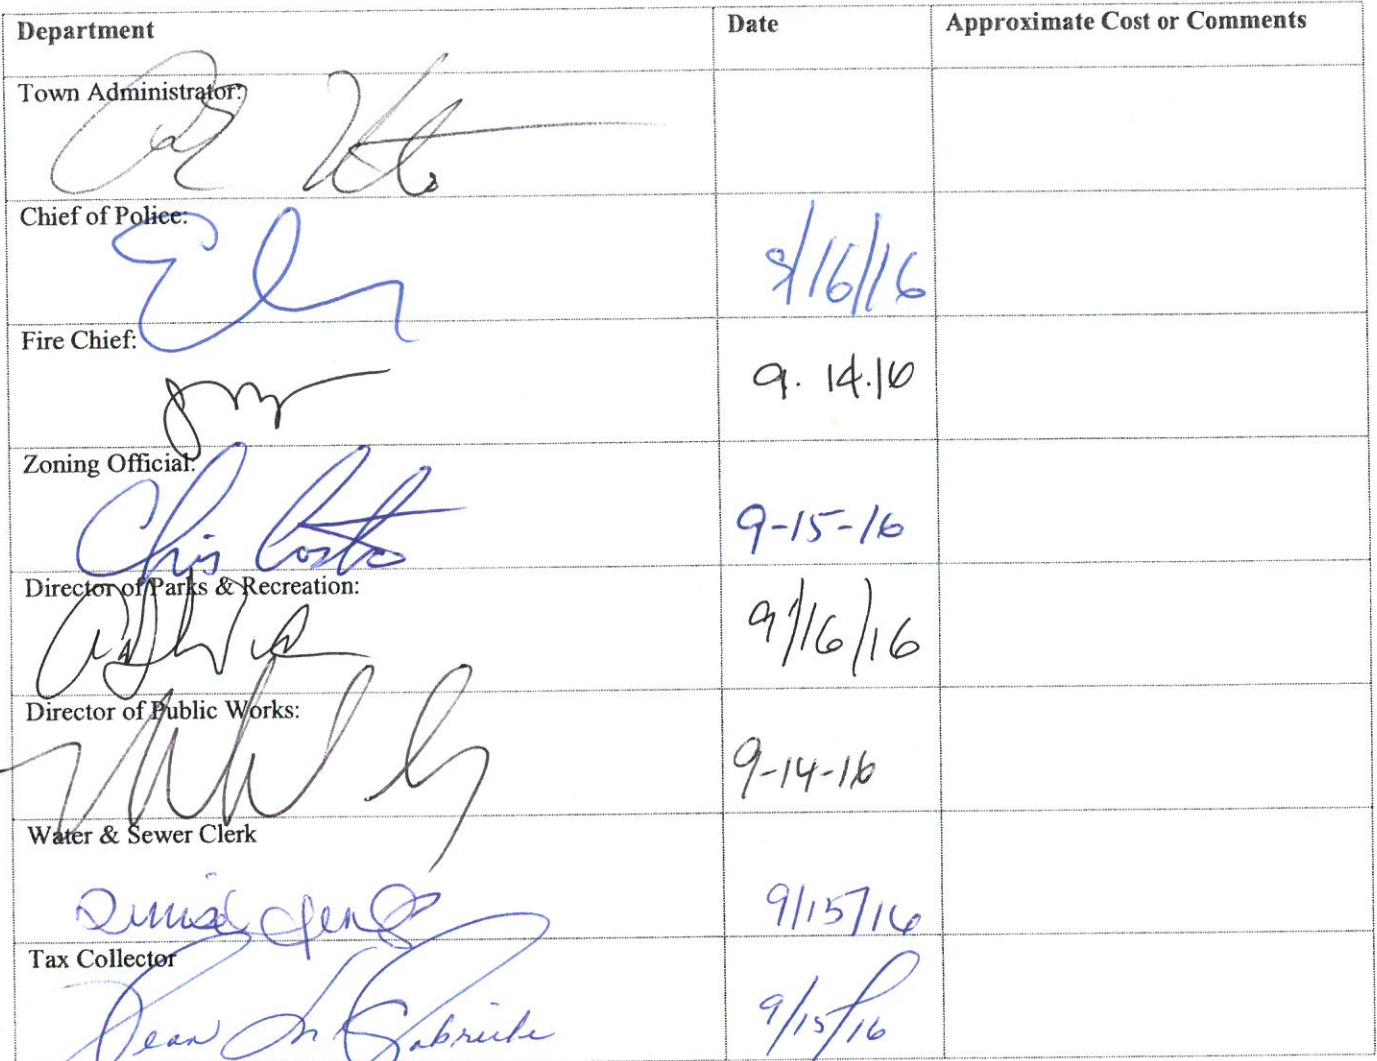 Department Date Approximate Cost or Comments
Town Administrator:
Chief of Police:
9/16/16
Fire Chief:
9.14.16
Zoning Official:
Chris Costa 9-15-16
Director of Parks & Recreation:
9/16/16
Director of Public Works:
9-14-16
Water & Sewer Clerk
9/15/16
Tax Collector
Jean M Gabriele 9/15/16